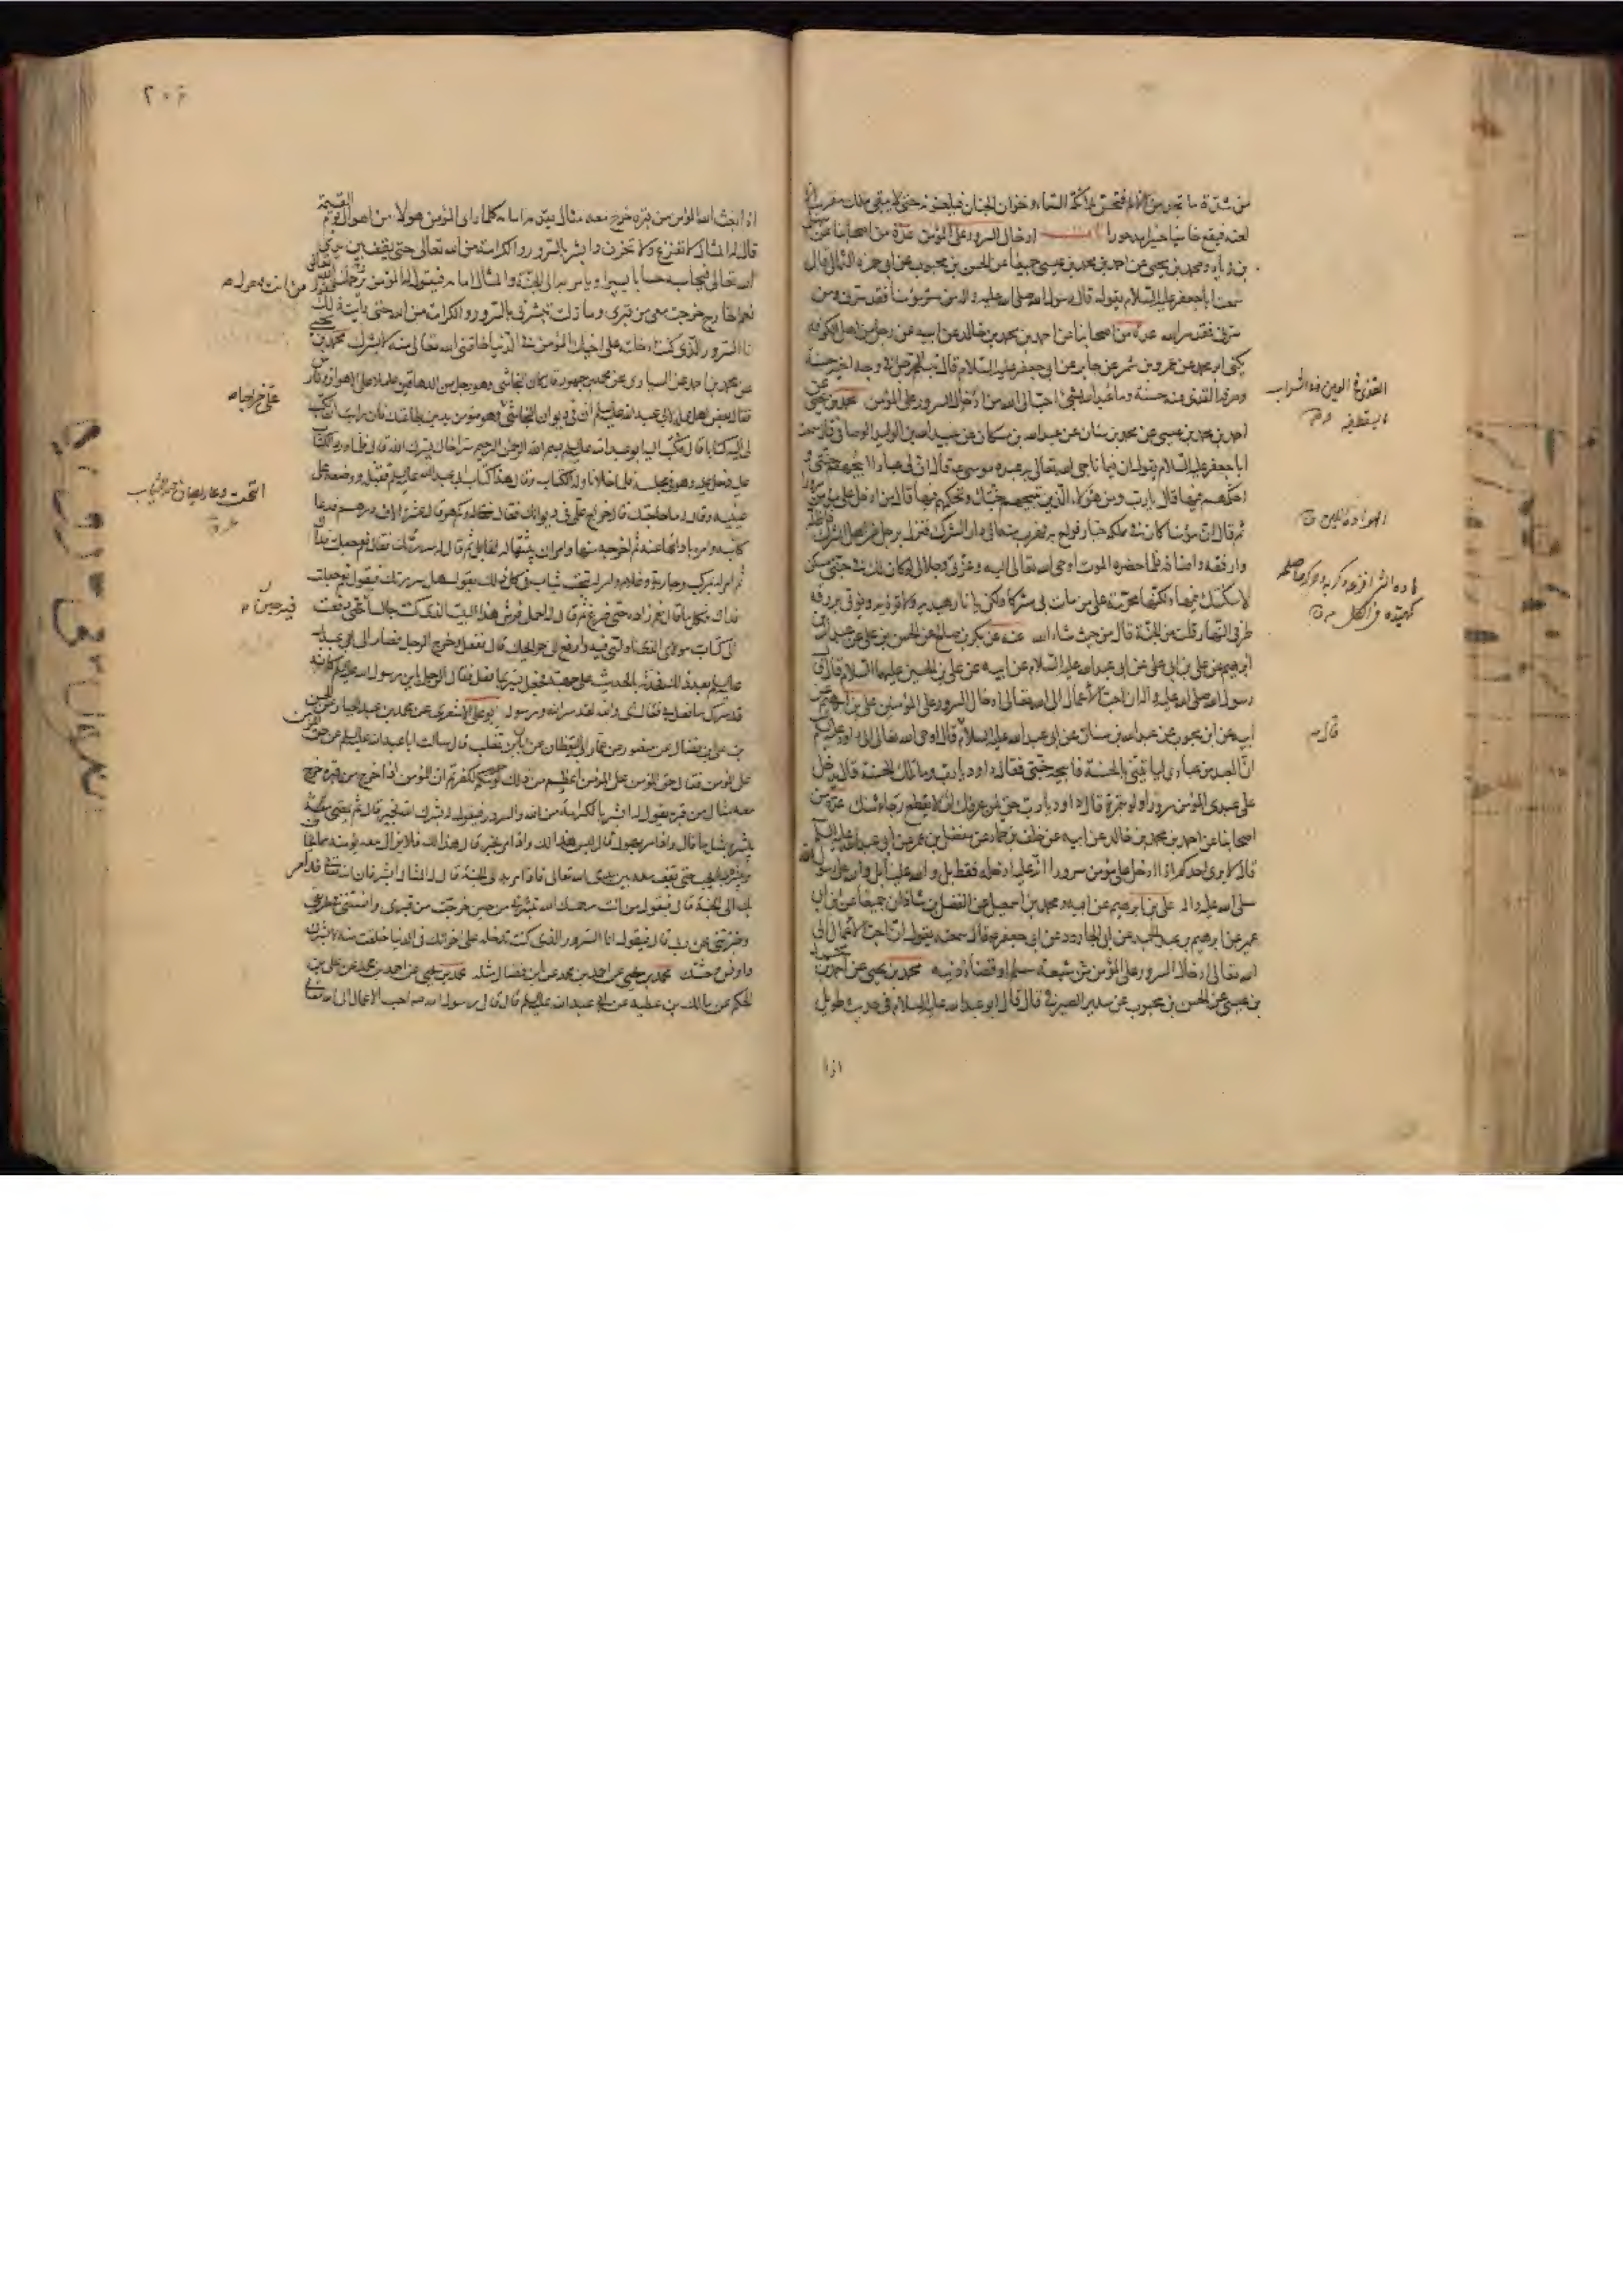 من شدة ما يجد من الألم فتحس ملائكة السماء وخزان الجنان فيلعنونه حتى لا يبقى ملك مقرب إلا
لعنه فيقع خاسئا حسيرا مدحورا ادخال السرور على المؤمن عدة من اصحابنا عن سهل
بن زياد ومحمد بن يحيى عن احمد بن محمد بن عيسى جميعا عن الحسن بن محبوب عن ابي حمزة الثمالي قال
سمعت ابا جعفر عليه السلام يقول قال رسول الله صلى الله عليه واله من سر مؤمنا فقد سرني ومن
سرني فقد سر الله عدة من اصحابنا عن احمد بن محمد بن خالد عن ابيه عن رجل من اهل الكوفة
يكنى ابا محمد عن عمرو بن شمر عن جابر عن ابي جعفر عليه السلام قال تبسم الرجل في وجه اخيه حسنة
وصرف القذى عنه حسنة وما عبد الله بشئ احب الى الله من ادخال السرور على المؤمن محمد بن يحيى عن
احمد بن محمد بن عيسى عن محمد بن سنان عن عبدالله بن مسكان عن عبيدالله بن الوليد الوصافي قال سمعت
ابا جعفر عليه السلام يقول ان فيما ناجى الله تعالى به عبده موسى ع قال ان لي عبادا ابيحهم جنتي و
احكمهم فيها قال يا رب ومن هؤلاء الذين تبيحهم جنتك وتحكمهم فيها قال من ادخل على مؤمن سرورا
ثم قال ان مؤمنا كان في مملكة جبار فولع به فهرب منه الى دار الشرك فنزل برجل من اهل الشرك فاظله
وارفقه واضافه فلما حضره الموت اوحى الله تعالى اليه وعزتي وجلالي لو كان لك في جنتي مسكن
لاسكنتك فيها ولكنها محرمة على من مات بي مشركا ولكن يا نار هيديه ولا تؤذيه ويؤتى برزقه
طرفي النهار قلت من الجنة قال من حيث شاء الله عنه عن بكر بن صالح عن الحسن بن علي عن عبدالله بن
ابرهيم عن علي بن ابي علي عن ابي عبدالله عليه السلام عن ابيه عن علي بن الحسين عليهما السلام قال قال
رسول الله صلى الله عليه واله ان احب الاعمال الى الله تعالى ادخال السرور على المؤمنين علي بن ابرهيم عن
ابيه عن ابن محبوب عن عبدالله بن سنان عن ابي عبدالله عليه السلام قال اوحى الله تعالى الى داود عليه السلم
ان العبد من عبادي لياتيني بالحسنة فابيحه جنتي فقال داود يا رب وما تلك الحسنة قال يدخل
على عبدي المؤمن سرورا ولو بتمرة قال داود يا رب حق لمن عرفك ان لا يقطع رجاءه منك عدة من
اصحابنا عن احمد بن محمد بن خالد عن ابيه عن خلف بن حماد عن مفضل بن عمر عن ابي عبدالله عليه السلم
قال لا يرى احدكم اذا ادخل على مؤمن سرورا انه عليه ادخله فقط بل والله علينا بل والله على رسول الله
صلى الله عليه واله علي بن ابرهيم عن ابيه ومحمد بن اسمعيل عن الفضل بن شاذان جميعا عن ابن ابي
عمير عن ابرهيم بن عبد الحميد عن ابي الجارود عن ابي جعفر ع قال سمعته يقول ان احب الاعمال الى
الله تعالى ادخال السرور على المؤمن شبعة مسلم او قضاء دينه محمد بن يحيى عن احمد بن محمد
بن عيسى عن الحسن بن محبوب عن سدير الصيرفي قال قال ابو عبدالله عليه السلام في حديث طويل
اذا
القذى في العين وفي الشراب
ما يسقط فيه
قال
٢٠٤
اذا بعث الله المؤمن من قبره خرج معه مثال يقدم امامه كلما راى المؤمن هولا من اهوال يوم القيمة
قال له المثال لا تفزع ولا تحزن وابشر بالسرور والكرامة من الله تعالى حتى يقف بين يدي
الله تعالى فيحاسبه حسابا يسيرا ويامر به الى الجنة والمثال امامه فيقول له المؤمن يرحمك الله
نعم الخارج خرجت معي من قبري وما زلت تبشرني بالسرور والكرامة من الله حتى رايت ذلك
انا السرور الذي كنت ادخلته على اخيك المؤمن في الدنيا خلقني الله تعالى منه لابشرك محمد بن يحيى
عن محمد بن احمد عن السياري عن محمد بن جمهور قال كان النجاشي وهو رجل من الدهاقين عاملا على الاهواز وفارس
فقال بعض اهل عمله لابي عبدالله عليه السلم ان في ديوان النجاشي علي خراجا وهو مؤمن يدين بطاعتك فان رايت ان تكتب
لي اليه كتابا قال فكتب اليه ابو عبدالله عليه السلم بسم الله الرحمن الرحيم سر اخاك يسرك الله قال فلما ورد الكتاب
عليه دخل عليه وهو في مجلسه فلما خلا ناوله الكتاب وقال هذا كتاب ابي عبدالله عليه السلم فقبله ووضعه على
عينيه وقال له ما حاجتك قال خراج علي في ديوانك فقال له وكم هو قال عشرة الاف درهم فدعا
كاتبه وامره بادائها عنه ثم اخرجه منها وامر ان يثبتها له لقابل ثم قال له سررتك فقال نعم جعلت فداك
ثم امر له بمركب وجارية وغلام وامر له بتخت ثياب في كل ذلك يقول هل سررتك فيقول نعم جعلت
فداك فكلما قال نعم زاده حتى فرغ ثم قال له احمل فرش هذا البيت الذي كنت جالسا فيه حين دفعت
الي كتاب مولاي الذي ناولتني فيه وارفع الي حوائجك قال ففعل وخرج الرجل فصار الى ابي عبدالله
عليه السلم بعد ذلك فحدثه بالحديث على جهته فجعل يسر بما فعل فقال الرجل يا بن رسول الله كانه
قد سرك ما فعل بي فقال اي والله لقد سر الله ورسوله ابو علي الاشعري عن محمد بن عبد الجبار عن الحسن
بن علي بن فضال عن منصور عن عمار ابي اليقظان عن ابان بن تغلب قال سالت ابا عبدالله عليه السلم عن حق المؤمن
على المؤمن فقال حق المؤمن على المؤمن اعظم من ذلك لو حدثتكم لكفرتم ان المؤمن اذا خرج من قبره خرج
معه مثال من قبره يقول له ابشر بالكرامة من الله والسرور فيقول له بشرك الله بخير قال ثم يمضي معه
يبشره بمثل ما قال واذا مر بهول قال ليس هذا لك واذا مر بخير قال هذا لك فلا يزال معه يؤمنه مما يخاف
ويبشره بما يحب حتى يقف معه بين يدي الله تعالى فاذا امر به الى الجنة قال له المثال ابشر فان الله تعالى قد امر
بك الى الجنة قال فيقول من انت رحمك الله تبشرني من حين خرجت من قبري وانستني في طريقي
وخبرتني عن ربي قال فيقول انا السرور الذي كنت تدخله على اخوانك في الدنيا خلقت منه لابشرك
واونس وحشتك محمد بن يحيى عن احمد بن محمد عن ابن فضال مثله محمد بن يحيى عن احمد بن محمد عن علي بن
الحكم عن مالك بن عطية عن ابي عبدالله عليه السلم قال قال رسول الله ص احب الاعمال الى الله تعالى
علي خراجا
التخت وعاء يصان فيه الثياب
فيه حين